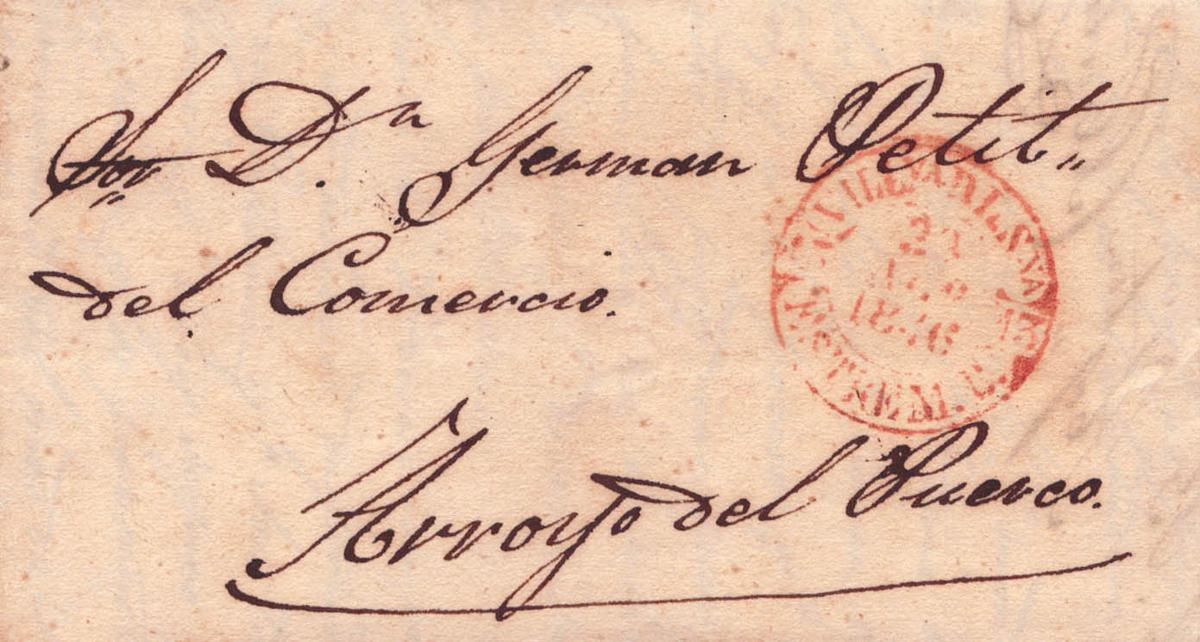 Sor D.n German Petit.
del Comercio.
Arroyo del Puerco.
1846
ESTREM. B.